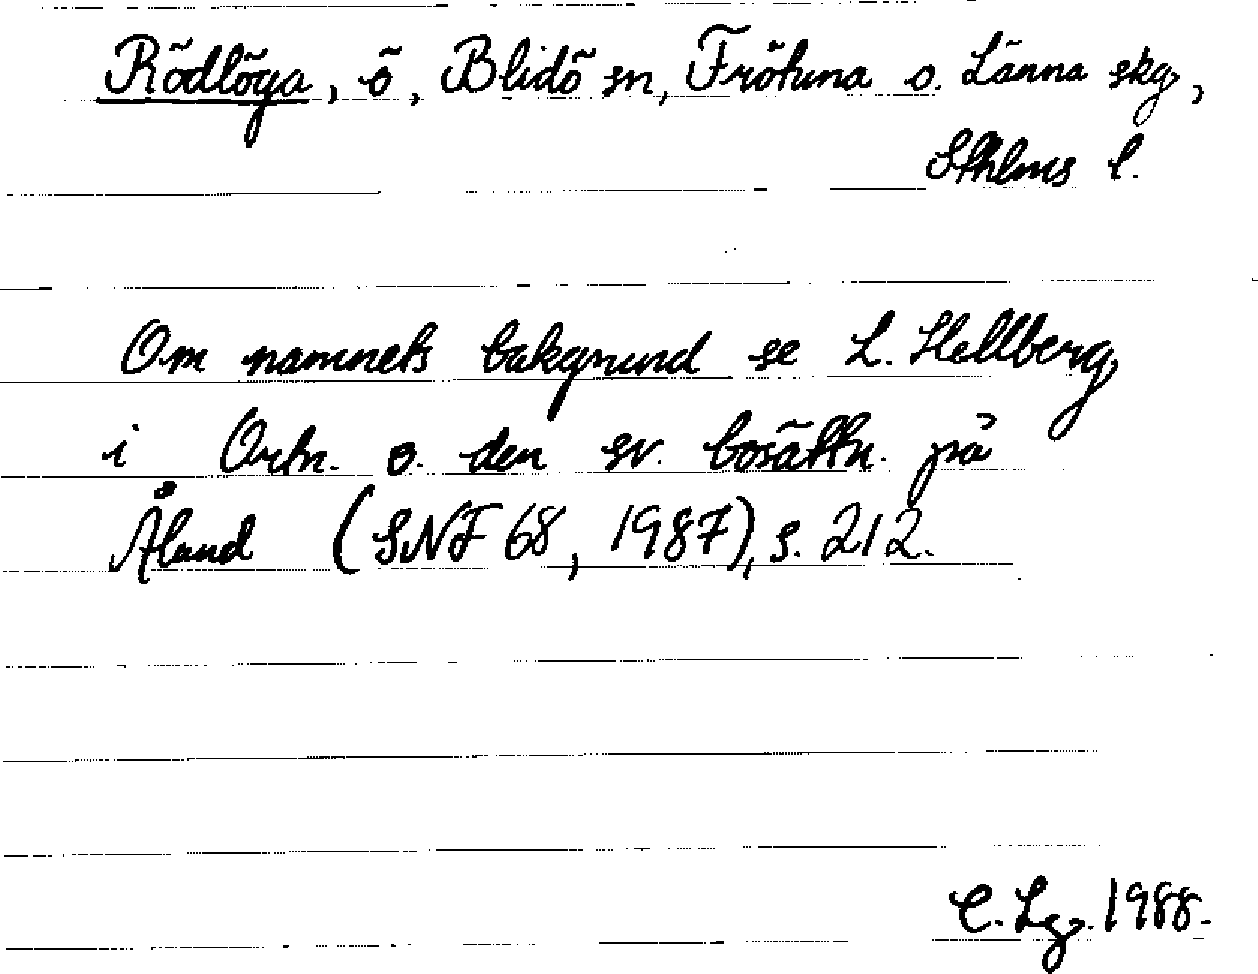 Rödlöga, ö, Blidö sn, Frötuna o. Länna skg,
Sthlms l.
Om namnets bakgrund se L. Hellberg
i Ortn. o. den sv. bosättn. på
Åland (SNF 68, 1987), s. 212.
C. Lgz. 1988.